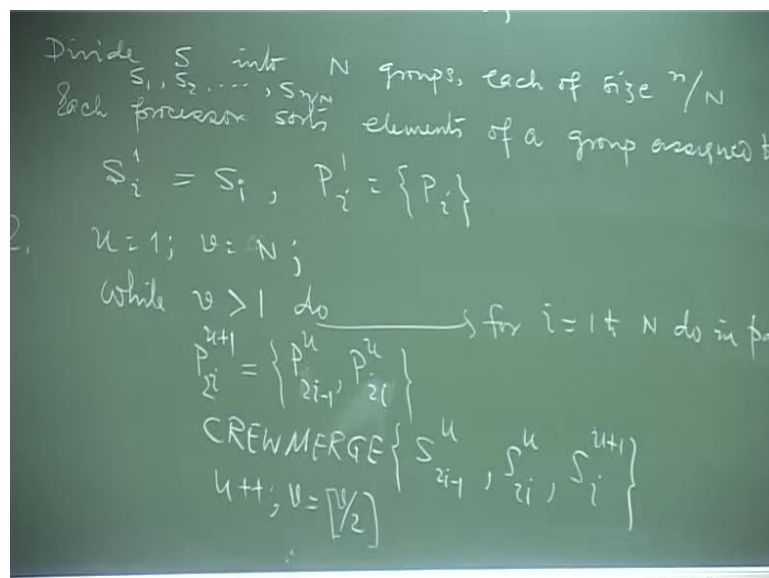 Divide S into N groups, each of size n/N
S₁, S₂, ...., S_{n/N}
Each processor sorts elements of a group assigned t
S_i^1 = S_i, P_i^1 = {P_i}
2. u = 1; v = N;
while v > 1 do for i = 1 to N do in pa
P_{2i}^{u+1} = {P_{2i-1}^u, P_{2i}^u}
CREWMERGE{S_{2i-1}^u, S_{2i}^u, S_i^{u+1}}
u++; v = ⌈v/2⌉